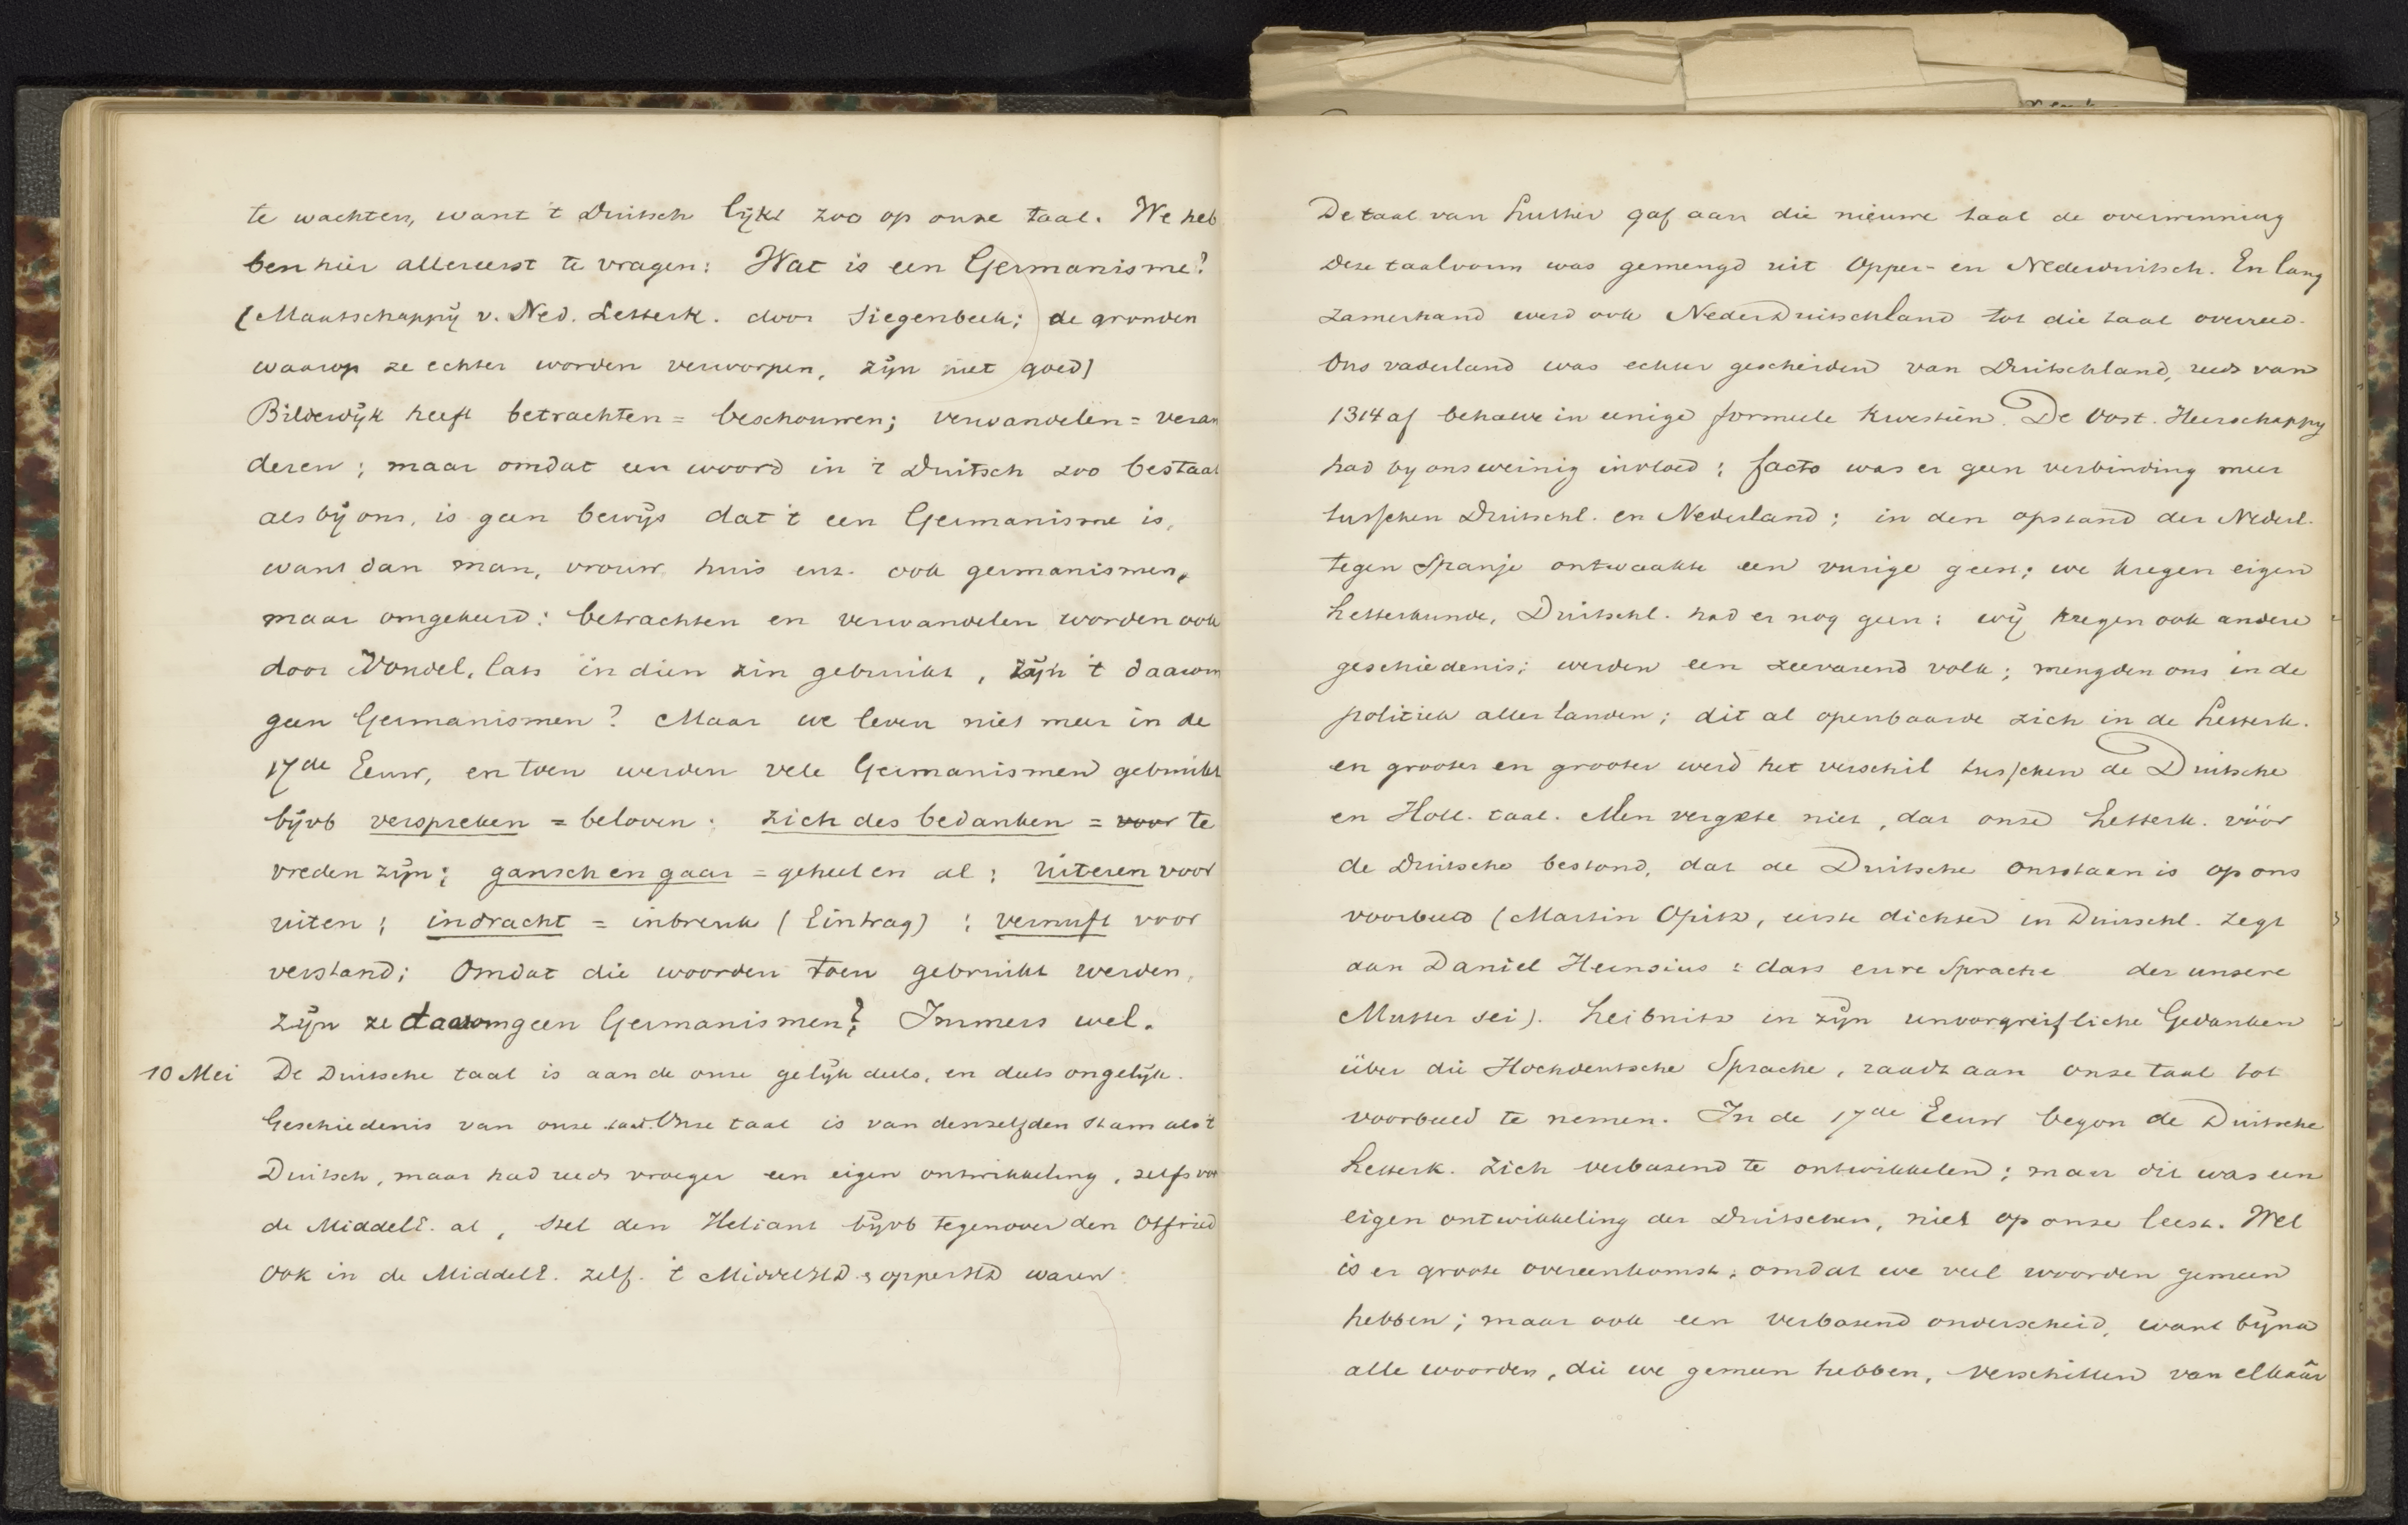 te wachten, want 't Duitsch lijkt zoo op onze taal. We heb
ben hier allereerst te vragen: Wat is een Germanisme?
(Maatschappij v. Ned. Letterk. door Siegenbeek; de gronden
waarop ze echter worden verworpen, zijn niet goed)
Bilderdijk heeft betrachten = beschouwen; verwandelen = veran
deren; maar omdat een woord in 't Duitsch zoo bestaat
als bij ons, is geen bewijs dat 't een Germanisme is,
want dan man, vrouw, huis enz. ook germanismen,
maar omgekeerd: betrachten en verwandelen worden ook
door Vondel, Cats in dien zin gebruikt, zijn 't daarom
geen Germanismen? Maar we leven niet meer in de
17de Eeuw, en toen werden vele Germanismen gebruikt
bijvb verspreken = beloven: zich des bedanken = voor te
vreden zijn; gansch en gaar = geheel en al; uiteren voor
uiten; indracht = inbreuk (Eintrag); vernuft voor
verstand; Omdat die woorden toen gebruikt werden,
zijn ze daarom geen Germanismen? Immers wel.
10 Mei De Duitsche taal is aan de onze gelijk deels, en deels ongelijk.
Geschiedenis van onze taal. Onze taal is van denzelfden stam als 't
Duitsch, maar had reeds vroeger een eigen ontwikkeling, zelfs vor
de MiddelE. al, stel den Heliant bijvb tegenover den Otfried
Ook in de MiddelE. zelf. 't MiddelHD & opperHD waren
De taal van Luther gaf aan die nieuwe taal de overwinning
Deze taalvorm was gemengd uit Opper- en Nederduitsch. En lang
zamerhand werd ook NederDuitschland tot die taal overreed.
Ons vaderland was echter gescheiden van Duitschland, reeds van
1314 af behalve in eenige formeele kwestiën. De Oost. Heerschappy
had by ons weinig invloed; facto was er geen verbinding meer
tusschen Duitschl. en Nederland; in den opstand der Nederl.
tegen Spanje ontwaakte een vurige geest; we kregen eigen
Letterkunde, Duitschl. had er nog geen; wij kregen ook andere
geschiedenis; werden een zeevarend volk; mengden ons in de
politiek aller landen; dit al openbaarde zich in de Letterk.
en grooter en grooter werd het verschil tusschen de Duitsche
en Holl. taal. Men vergete niet, dat onze Letterk. vóór
de Duitsche bestond, dat de Duitsche ontstaan is op ons
voorbeeld (Martin Opitz, eerste dichter in Duitschl. zegt
aan Daniel Heinsius: dass eure Sprache der unsere
Mutter sei). Leibnitz in zijn unvorgreifliche Gedanken
über die Hochdeutsche Sprache, raadt aan onze taal tot
voorbeeld te nemen. In de 17de Eeuw begon de Duitsche
Letterk. zich verbazend te ontwikkelen; maar dit was een
eigen ontwikkeling der Duitschen, niet op onze leest. Wel
is er groote overeenkomst; omdat we veel woorden gemeen
hebben; maar ook een verbazend onderscheid, want bijna
alle woorden, die we gemeen hebben, verschillen van elkaâr